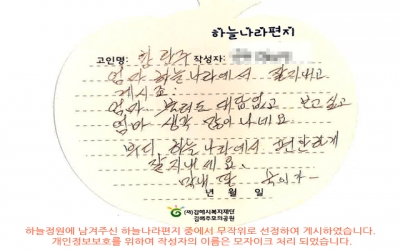 하늘나라편지
고인명: 함 작성자:
엄마 하늘나라에서 잘지내고
계시요.
엄마 불러도 대답없고 보고싶고
엄마 생각 많이 나네요
부디, 하늘나라에서 편안하게
잘지내세요.
막내 딸
년 월 일
(재)김해시복지재단
김해추모의공원
하늘정원에 남겨주신 하늘나라편지 중에서 무작위로 선정하여 게시하였습니다.
개인정보보호를 위하여 작성자의 이름은 모자이크 처리 되었습니다.